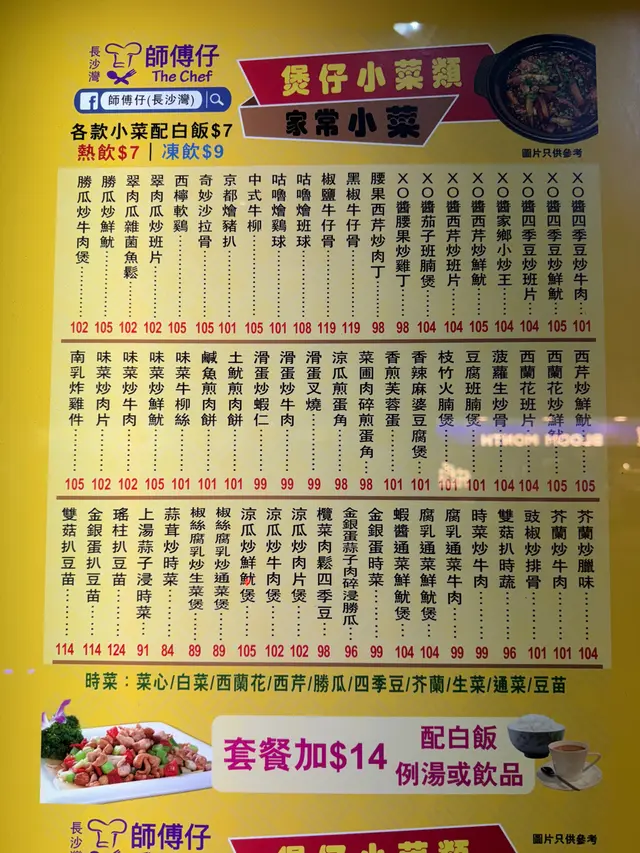 長沙灣
師傅仔
The Chef
f 師傅仔(長沙灣)
煲仔小菜類
家常小菜
各款小菜配白飯$7
熱飲$7 | 凍飲$9
圖片只供參考
XO醬四季豆炒牛肉 101
XO醬四季豆炒鮮魷 105
XO醬四季豆炒班片 104
XO醬家鄉小炒王 104
XO醬西芹炒鮮魷 105
XO醬西芹炒班片 104
XO醬茄子班腩煲 104
XO醬腰果炒雞丁 98
腰果西芹炒肉丁 98
黑椒牛仔骨 119
椒鹽牛仔骨 119
咕嚕燴班球 108
咕嚕燴雞球 101
中式牛柳 105
京都燴豬扒 101
奇妙沙拉骨 105
西檸軟雞 105
翠肉瓜炒班片 102
翠肉瓜雜菌魚鬆 102
勝瓜炒鮮魷 105
勝瓜炒牛肉煲 102
西芹炒鮮魷 105
西蘭花炒鮮魷 105
西蘭花班片 104
菠蘿生炒骨 104
豆腐班腩煲 101
枝竹火腩煲 101
香辣麻婆豆腐煲 101
香煎芙蓉蛋 101
菜圃肉碎煎蛋角 98
涼瓜煎蛋角 98
滑蛋叉燒 99
滑蛋炒牛肉 99
滑蛋炒蝦仁 99
土魷煎肉餅 101
鹹魚煎肉餅 101
味菜牛柳絲 101
味菜炒鮮魷 105
味菜炒牛肉 102
味菜炒肉片 102
南乳炸雞件 105
芥蘭炒臘味 104
芥蘭炒牛肉 101
豉椒炒排骨 101
雙菇扒時蔬 96
時菜炒牛肉 99
腐乳通菜牛肉 99
腐乳通菜鮮魷煲 104
蝦醬通菜鮮魷煲 104
金銀蛋時菜 99
金銀蛋蒜子肉碎浸勝瓜 96
欖菜肉鬆四季豆 98
涼瓜炒肉片煲 102
涼瓜炒牛肉煲 102
涼瓜炒鮮魷煲 105
椒絲腐乳炒通菜煲 89
椒絲腐乳炒生菜煲 89
蒜茸炒時菜 84
上湯蒜子浸時菜 91
瑤柱扒豆苗 124
金銀蛋扒豆苗 114
雙菇扒豆苗 114
時菜：菜心/白菜/西蘭花/西芹/勝瓜/四季豆/芥蘭/生菜/通菜/豆苗
套餐加$14
配白飯
例湯或飲品
圖片只供參考
長沙灣
師傅仔
煲仔小菜類